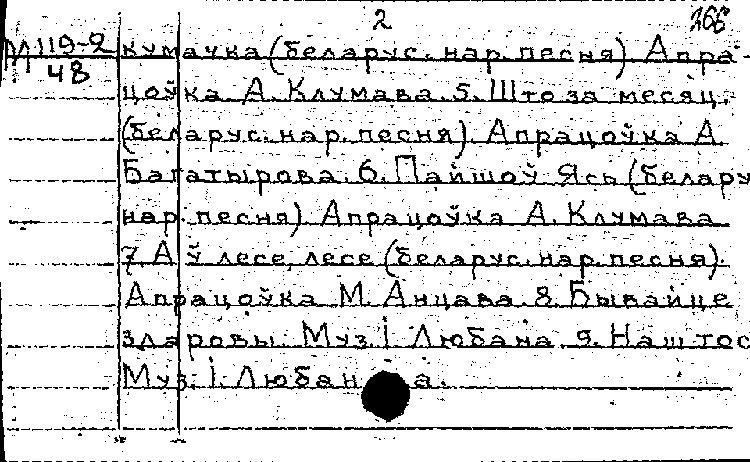 2 266
М119-2 кумачка (беларус. нар. песня) Апра-
48 цоўка А. Клумава. 5. Што за месяц.
(беларус. нар. песня) Апрацоўка А.
Багатырова. 6. Пайшоў Ясь (белару
нар. песня) Апрацоўка А. Клумава
7. А ў лесе, лесе (беларус. нар. песня).
Апрацоўка М. Анцава. 8. Бывайце
здаровы. Муз. І. Любана. 9. Наш тос
Муз. І. Любан а.